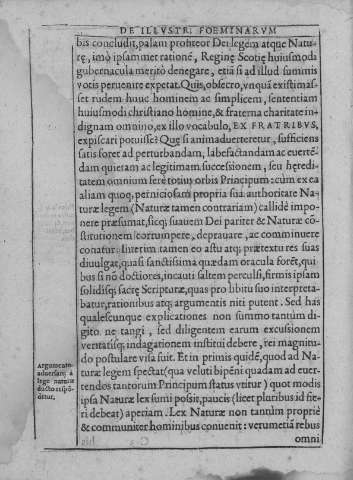 DE ILLVSTR. FOEMINARVM
bis concludit, palam profiteor Dei legem atque Natu-
ræ, imò ipsammet rationē, Reginę Scotię huiusmodi
gubernacula meritò denegare, etiā si ad illud summis
votis peruenire expetat. Quis, obsecro, vnquā existimas-
set rudem hunc hominem ac simplicem, sententiam
huiusmodi christiano homine, & fraterna charitate in-
dignam omnino, ex illo vocabulo, EX FRATRIBVS,
expiscari potuisse? Que si animaduerteretur, sufficiens
satis foret ad perturbandam, labefactandam ac euertē-
dam quietam ac legitimam successionem, seu heredi-
tatem omnium ferè totius orbis Principum: cùm ex ea
aliam quoq; perniciosam propria sua authoritate Na-
turæ legem (Naturæ tamen contrariam) callidè impo-
nere præsumat, sicq; suauem Dei pariter & Naturæ cō-
stitutionem corrumpere, deprauare, ac comminuere
conatur. Interim tamen eo astu atq; prætextu res suas
diuulgat, quasi sanctissima quædam oracula forēt, qui-
bus si nō doctiores, incauti saltem perculsi, firmis ipsam
solidisq; sacrę Scripturæ, quas pro libitu suo interpreta-
batur, rationibus atq; argumentis niti putent. Sed has
qualescunque explicationes non summo tantùm di-
gito ne tangi, sed diligentem earum excussionem
veritatisq; indagationem institui debere, rei magnitu-
do postulare visa fuit. Et in primis quidē, quod ad Na-
turæ legem spectat (qua veluti bipēni quadam ad euer-
tendos tantorum Principum status vtitur) quot modis
ipsa Naturæ lex sumi possit, paucis (licet pluribus id fie-
ri debeat) aperiam. Lex Naturæ non tantùm propriè
& communiter hominibus conuenit: verumetiā rebus
omni
Argumento
aduersarij à
lege naturæ
ducto respō-
detur.